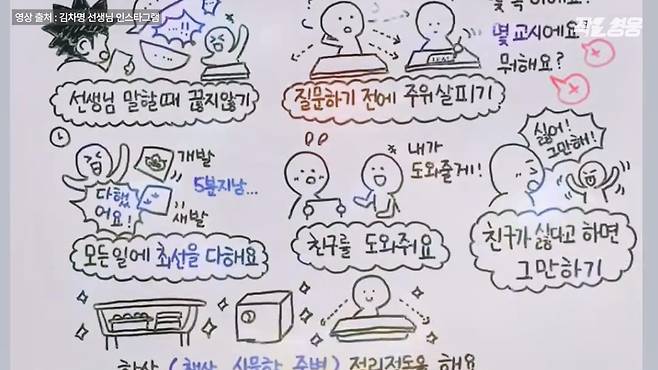 영상 출처 : 김차명 선생님 인스타그램
몇 교시에요?
뭐해요?
선생님 말할 때 끊지않기
질문하기 전에 주위 살피기
개발
5분지남...
다했어요!
새발
모든일에 최선을 다해요
내가
도와줄게!
친구를 도와줘요
싫어!
그만해!
친구가 싫다고 하면
그만하기
항상 (책상, 사물함, 주변) 정리정돈을 해요